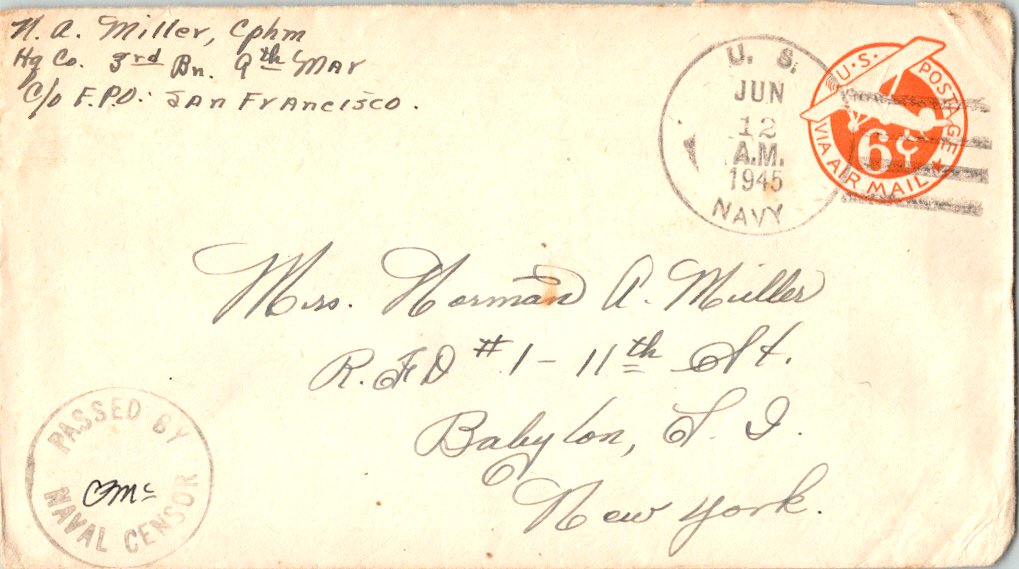 N. A. Miller, Cphm
Hq Co. 3rd Bn. 9th Mar
C/o F.P.O. San Francisco.
U. S.
JUN
12
A.M.
1945
NAVY
U.S. POSTAGE
6¢
VIA AIR MAIL
Mrs. Norman A. Miller
R.F.D #1 - 11th St.
Babylon, L. I.
New York.
PASSED BY
CMc
NAVAL CENSOR